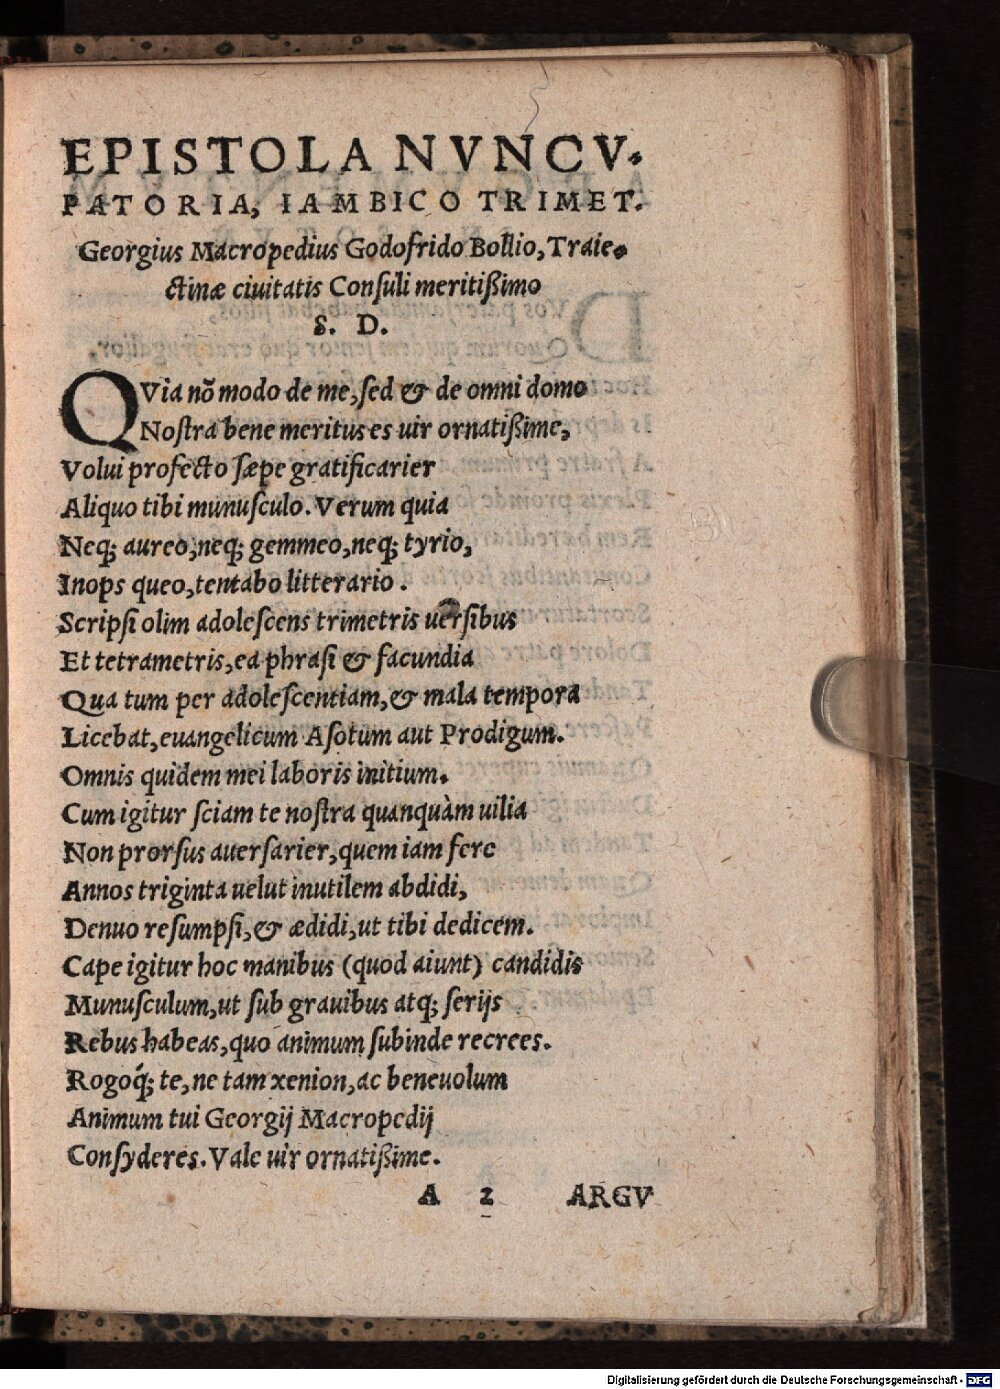 EPISTOLA NVNCV-
PATORIA, IAMBICO TRIMET.
Georgius Macropedius Godofrido Bollio, Traie-
ctinæ ciuitatis Conſuli meritißimo
S. D.
QVia nõ modo de me, ſed & de omni domo
Noſtra bene meritus es uir ornatißime,
Volui profecto ſæpe gratificarier
Aliquo tibi munuſculo. Verum quia
Neq; aureo, neq; gemmeo, neq; tyrio,
Inops queo, tentabo litterario.
Scripſi olim adoleſcens trimetris uerſibus
Et tetrametris, ea phraſi & facundia
Qua tum per adoleſcentiam, & mala tempora
Licebat, euangelicum Aſotum aut Prodigum.
Omnis quidem mei laboris initium.
Cum igitur ſciam te noſtra quanquàm uilia
Non prorſus auerſarier, quem iam fere
Annos triginta uelut inutilem abdidi,
Denuo reſumpſi, & ædidi, ut tibi dedicem.
Cape igitur hoc manibus (quod aiunt) candidis
Munuſculum, ut ſub grauibus atq; ſerijs
Rebus habeas, quo animum ſubinde recrees.
Rogoq́; te, ne tam xenion, ac beneuolum
Animum tui Georgij Macropedij
Conſyderes. Vale uir ornatißime.
A 2 ARGV
Digitalisierung gefördert durch die Deutsche Forschungsgemeinschaft - DFG